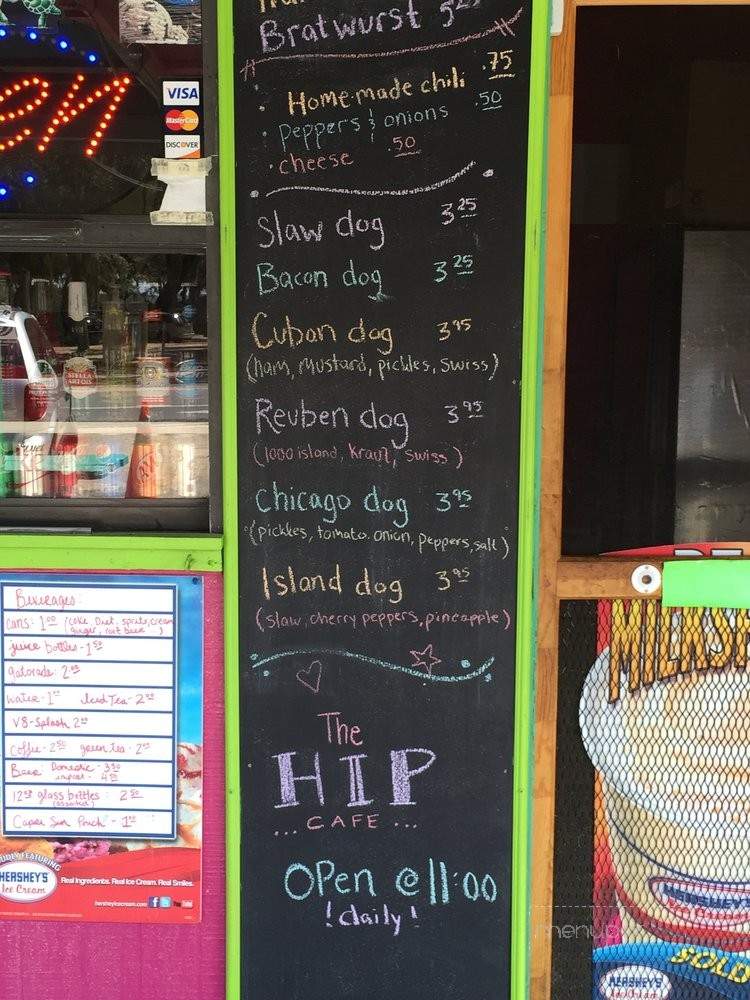 Bratwurst
Homemade chili .75
peppers & onions .50
cheese .50
Slaw dog 3.25
Bacon dog 3.25
Cuban dog 3.95
(ham, mustard, pickles, swiss)
Reuben dog 3.95
(1000 island, kraut, swiss)
Chicago dog 3.95
(pickles, tomato, onion, peppers, salt)
Island dog 3.95
(slaw, cherry peppers, pineapple)
The
HIP
... CAFE ...
OPen @ 11:00
! daily !
en
VISA
MasterCard
DISCOVER
STELLA
ARTOIS
Beverages:
cans: 1.00 (coke, Diet, sprite, cream
ginger, root beer)
juice bottles - 1.50
gatorade 2.00
water - 1.00 Iced Tea - 2.00
V8-Splash 2.00
coffee - 2.00 green tea - 2.00
Beer Domestic - 3.50
import - 4.00
12oz glass bottles: 2.50
(assorted)
Capri Sun Pouch - 1.00
UDLY FEATURING
HERSHEY'S
Ice Cream
Real Ingredients. Real Ice Cream. Real Smiles.
hersheyicecream.com
MILKSH
HERSHEY'S
SOLD
HERSHEY'S
Ice Cream
menup